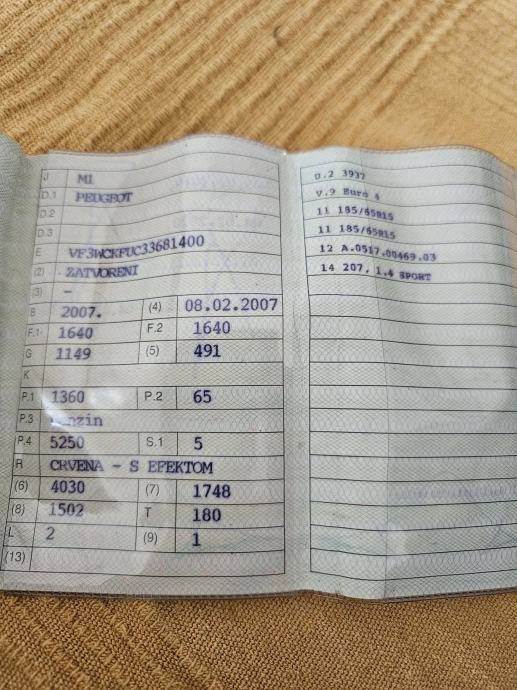 J M1
D.1 PEUGEOT
D.2
D.3
E VF3WCKFUC33681400
(2) ZATVORENI
(3) -
B 2007. (4) 08.02.2007
F.1 1640 F.2 1640
G 1149 (5) 491
K
P.1 1360 P.2 65
P.3 Benzin
P.4 5250 S.1 5
R CRVENA - S EFEKTOM
(6) 4030 (7) 1748
(8) 1502 T 180
L 2 (9) 1
(13)
D.2 3937
V.9 Euro 4
11 185/65R15
11 185/65R15
12 A.0517.00469.03
14 207, 1.4 SPORT